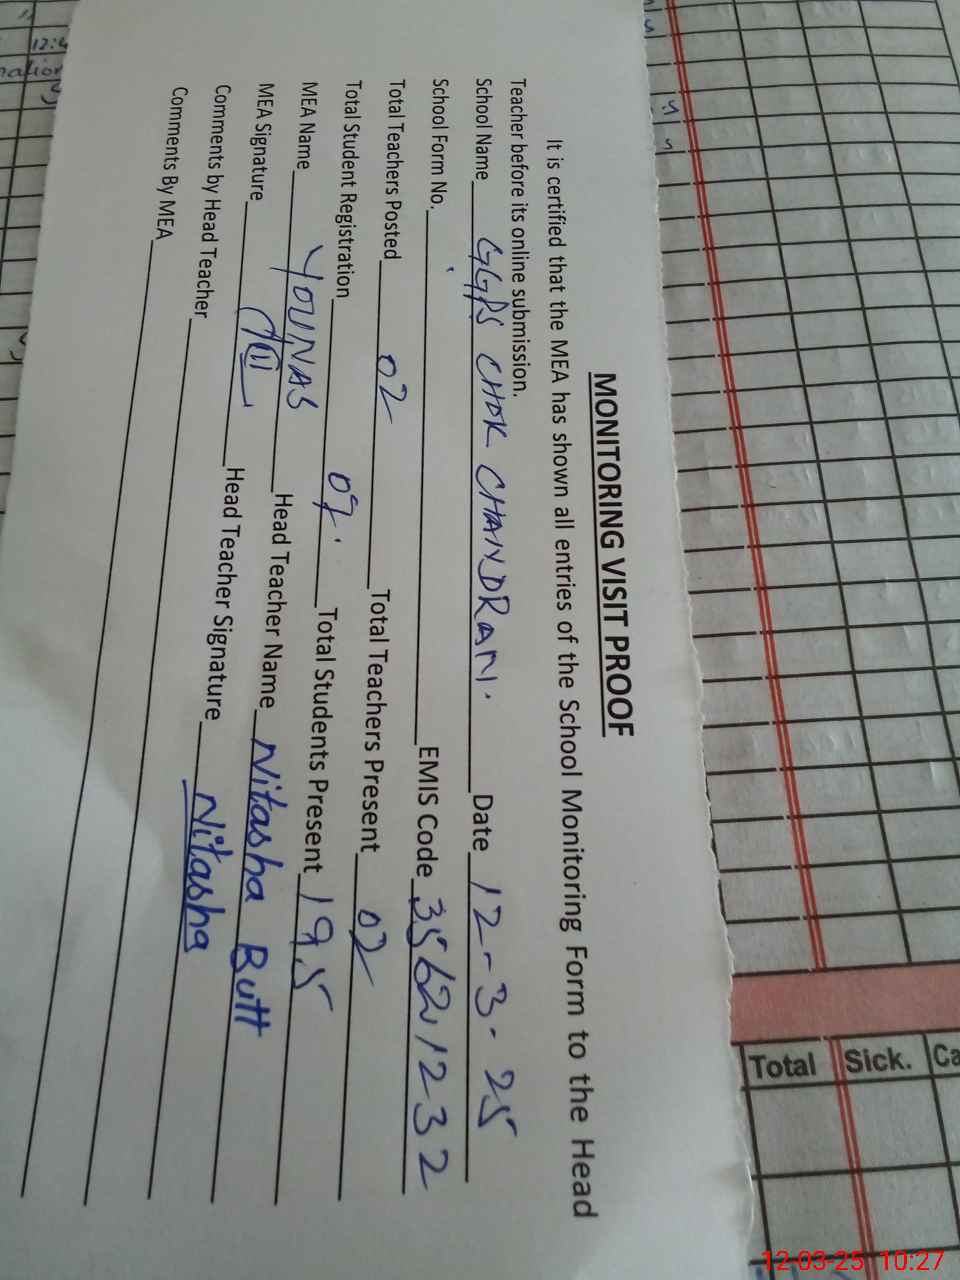 MONITORING VISIT PROOF
It is certified that the MEA has shown all entries of the School Monitoring Form to the Head
Teacher before its online submission.
School Name GGPS CHOK CHANDRAN. Date 12-3-25
School Form No. EMIS Code 35621232
Total Teachers Posted 02 Total Teachers Present 02
Total Student Registration 07. Total Students Present 195
MEA Name YOUNAS Head Teacher Name Nitasha Butt
MEA Signature Head Teacher Signature Nitasha
Comments by Head Teacher
Comments By MEA
Total Sick. Ca
12-03-25 10:27